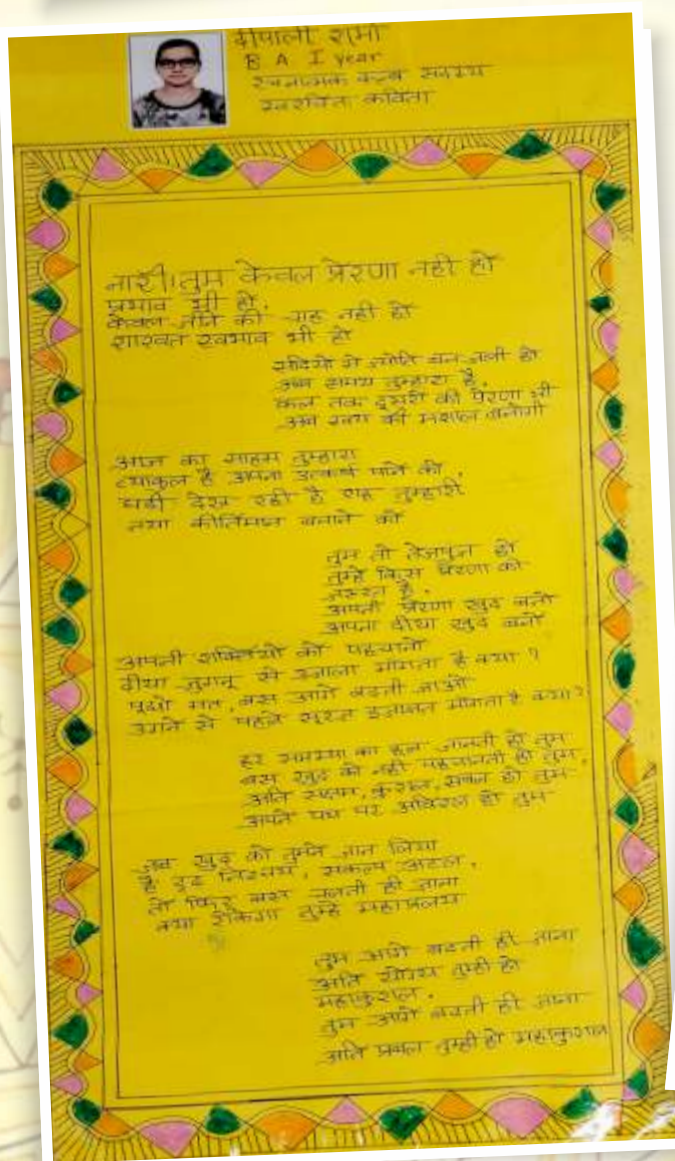 दीपाली शर्मा
B A I year
रचनात्मक क्लब सदस्य
स्वरचित कविता
नारी! तुम केवल प्रेरणा नही हो
प्रभाव भी हो,
केवल जीने की राह नही हो
शाश्वत स्वभाव भी हो
सदियों से ज्योति बन जली हो
अब समय तुम्हारा है,
कल तक दूसरों की प्रेरणा थी
अब स्वयं की मशाल बनोगी
आज का साहस तुम्हारा
व्याकुल है अपना उत्कर्ष पाने को,
घड़ी देख रही है राह तुम्हारी
नया कीर्तिमान बनाने को
तुम तो तेजपुंज हो
तुम्हे किस प्रेरणा की
जरूरत है,
अपनी प्रेरणा खुद बनो
अपना दीया खुद बनो
अपनी शक्तियों को पहचानो
दीया जुगनू से उजाला मांगता है क्या ?
पूछो मत, बस आगे बढती जाओ
उगने से पहले सूरज इजाजत मांगता है क्या ?
हर समस्या का हल जानती हो तुम
बस खुद को नही पहचानती हो तुम,
अति सक्षम, कुशल, सबल हो तुम
अपने पथ पर अविरल हो तुम
जब खुद को तुमने जान लिया
है दृढ निश्चय, संकल्प अटल,
तो फिर बस चलती ही जाना
क्या रोकेगा तुम्हे महाप्रलय
तुम आगे बढती ही जाना
अति योग्य तुम्ही हो
महाकुशल,
तुम आगे बढती ही जाना
अति प्रबल तुम्ही हो महाकुशल